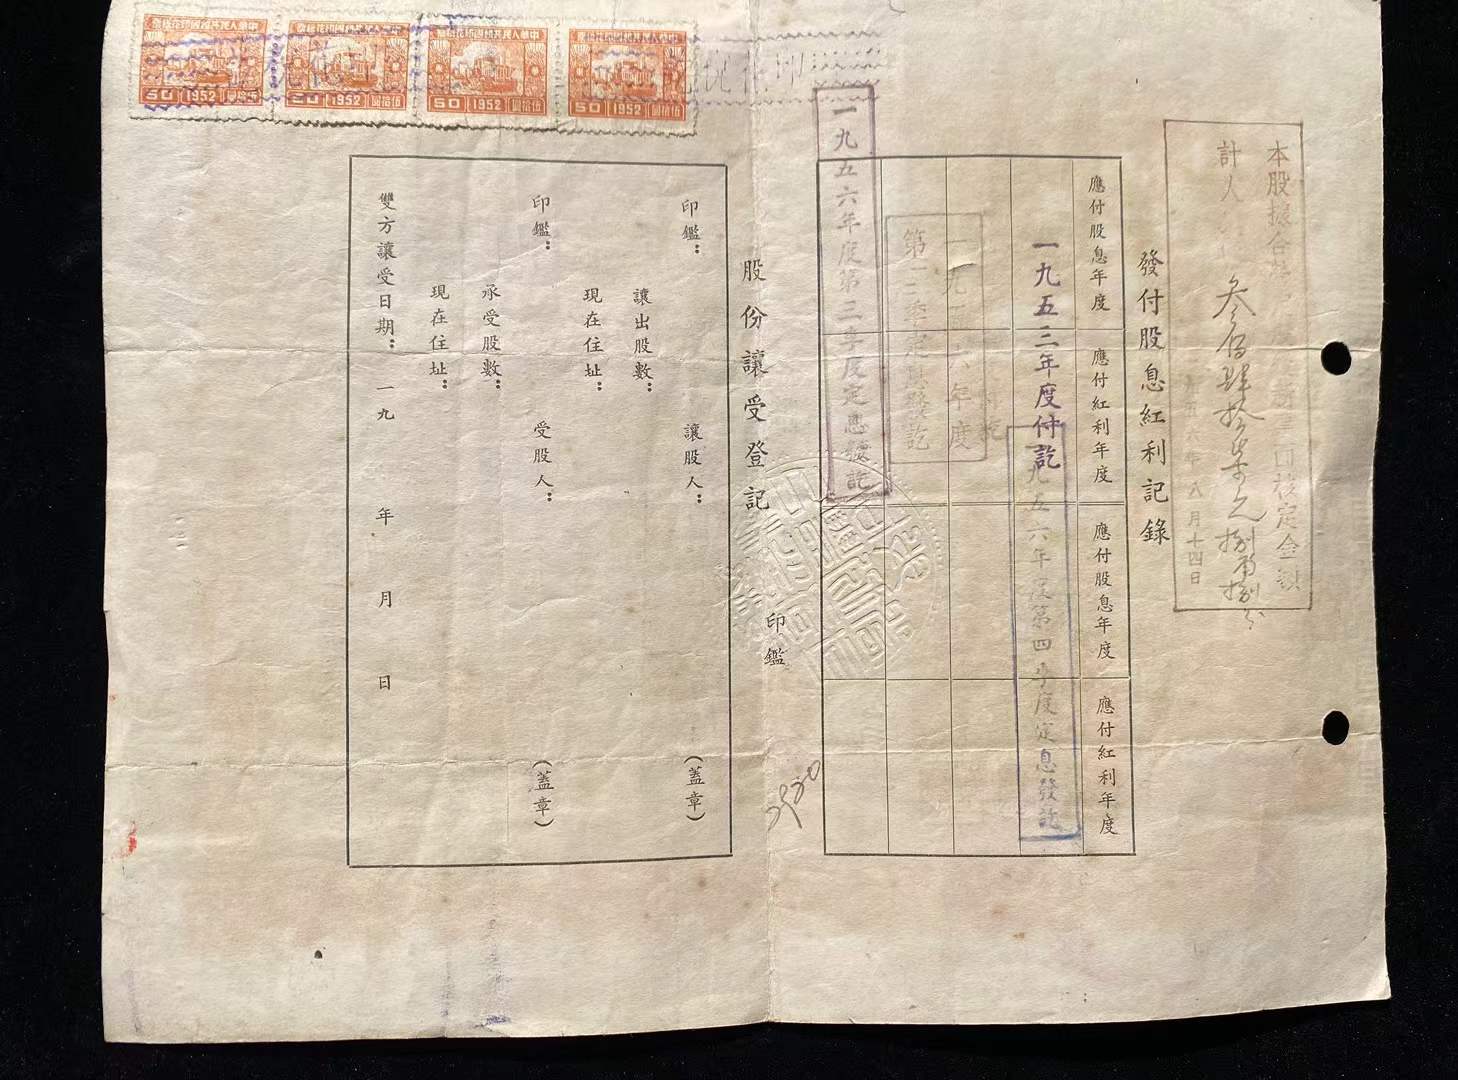 中華人民共和國印花稅票
50 1952 伍拾圓
中華人民共和國印花稅票
50 1952 伍拾圓
中華人民共和國印花稅票
50 1952 伍拾圓
中華人民共和國印花稅票
50 1952 伍拾圓
本股據合
核定金額
計人
叁佰肆拾柒元捌角捌分
五六年八月十四日
發付股息紅利記錄
應付股息年度
應付紅利年度
應付股息年度
應付紅利年度
一九五三年度付訖
一九五六年度第四季度定息發訖
一九五六年度
第一二季定息發訖
一九五六年度第三季度定息發訖
印鑑
股份讓受登記
印鑑：
讓股人：
（蓋章）
讓出股數：
現在住址：
印鑑：
受股人：
（蓋章）
承受股數：
現在住址：
雙方讓受日期：一九 年 月 日